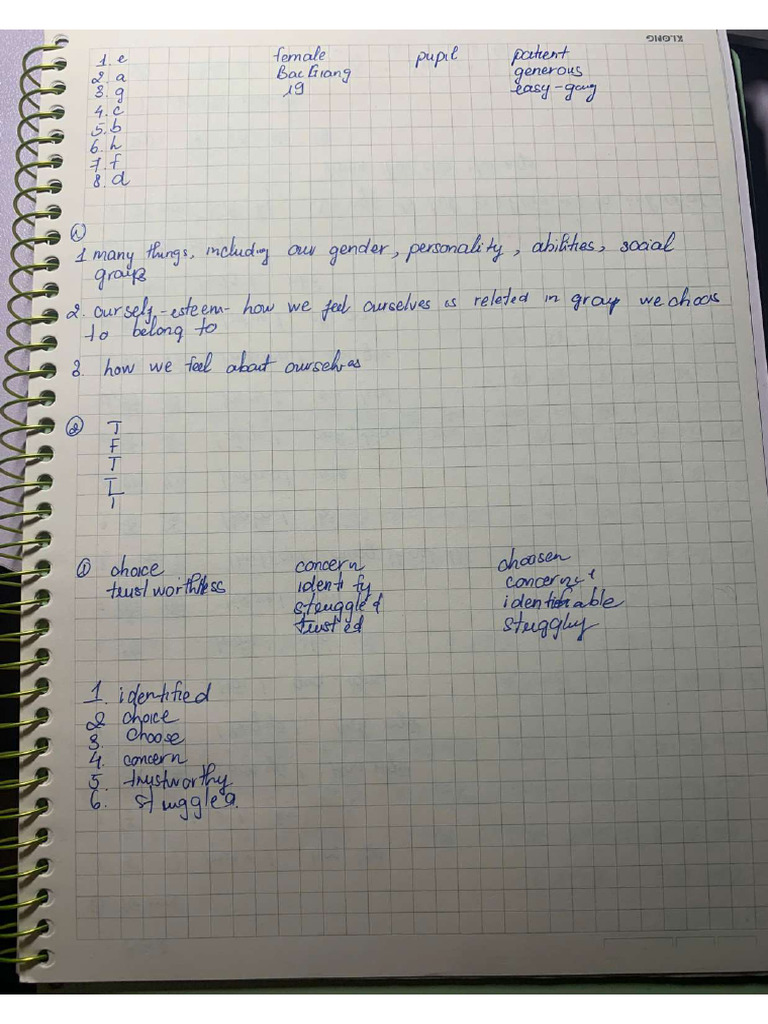 KLONG
1. e female pupil patient
2. a Bac Giang generous
3. g 19 easy-gong
4. c
5. b
6. h
7. f
8. d
①
1 many things, including our gender, personality, abilities, social
groups
2. our self-esteem- how we feel ourselves is releted in group we choos
to belong to
3. how we feel about ourselves
② T
F
T
T
① choice concern choosen
trustworthless identify
struggled identifiable
trusted struggly
1. identified
2 choice
3. choose
4. concern
5. trustworthy
6. struggled